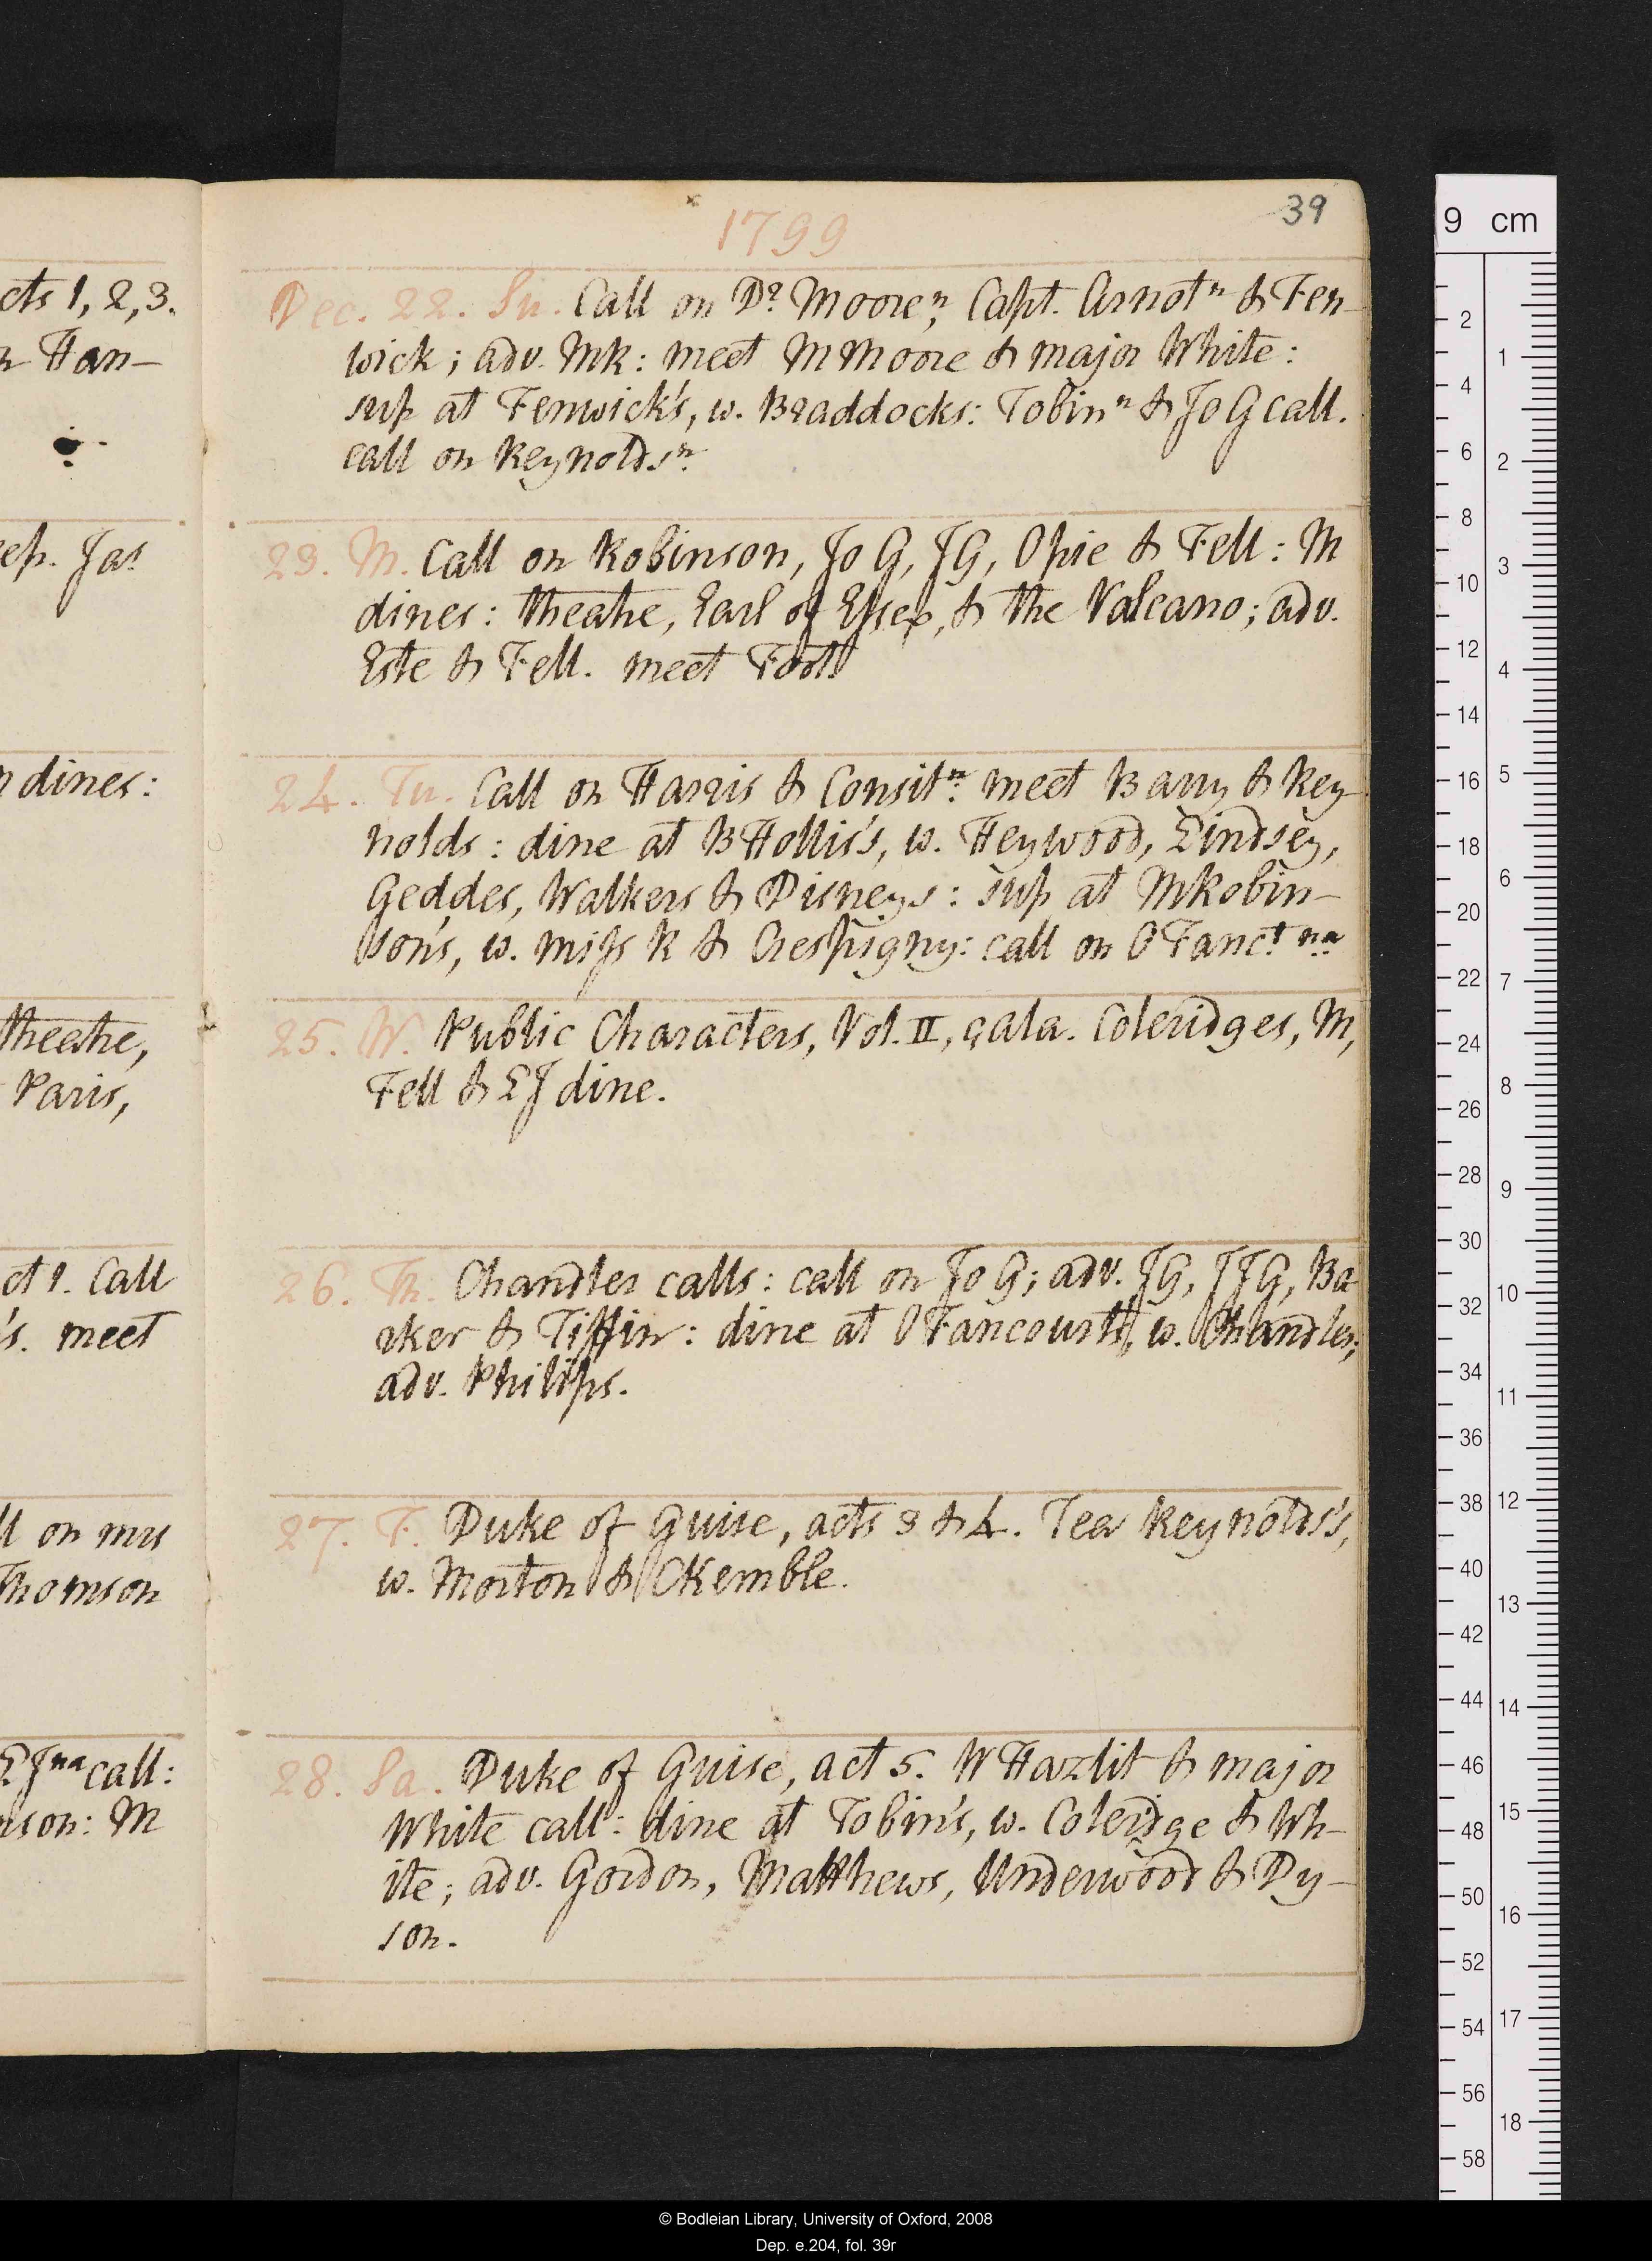 39
1799
cts 1, 2, 3.
Han-
ep. Jas
dines:
theatre,
Paris,
ct 1. Call
's. meet
ll on mrs
Thomson
LJ na call:
nson: M
Dec. 22. Su. Call on Dr Moore n, Capt. Arnot n & Fen-
wick; adv. MR: meet MMoore & major White:
sup at Fenwick's, w. Braddocks: Tobin n & JoG call.
call on Reynolds n.
23. M. Call on Robinson, Jo G, JG, Opie & Fell: M
dines: theatre, Earl of Essex, & the Valcano; adv.
Este & Fell. meet Foot.
24. Tu. Call on Harris & Consit n: meet Barry & Rey-
nolds: dine at BHollis's, w. Heywood, Lindsey,
Geddes, Walkers & Disneys: sup at MRobin-
son's, w. miss R & Crespigny: call on O Fanct na
25. W. Public Characters, Vol. II, çala. Coleridges, M,
Fell & LJ dine.
26. Th. Chandler calls: call on Jo G; adv. JG, JJG, Ba-
rker & Tiffin: dine at O Fancourt's, w. Chandler;
adv. Philips.
27. F. Duke of Guise, acts 3 & 4. Tea Reynolds's,
w. Morton & CKemble.
28. Sa. Duke of Guise, act 5. W Hazlit & major
White call: dine at Tobin's, w. Coleridge & Wh-
ite; adv. Gordon, Matthews, Underwood & Dy-
son.
9 cm
2
4
6
8
10
12
14
16
18
20
22
24
26
28
30
32
34
36
38
40
42
44
46
48
50
52
54
56
58
1
2
3
4
5
6
7
8
9
10
11
12
13
14
15
16
17
18
© Bodleian Library, University of Oxford, 2008
Dep. e.204, fol. 39r